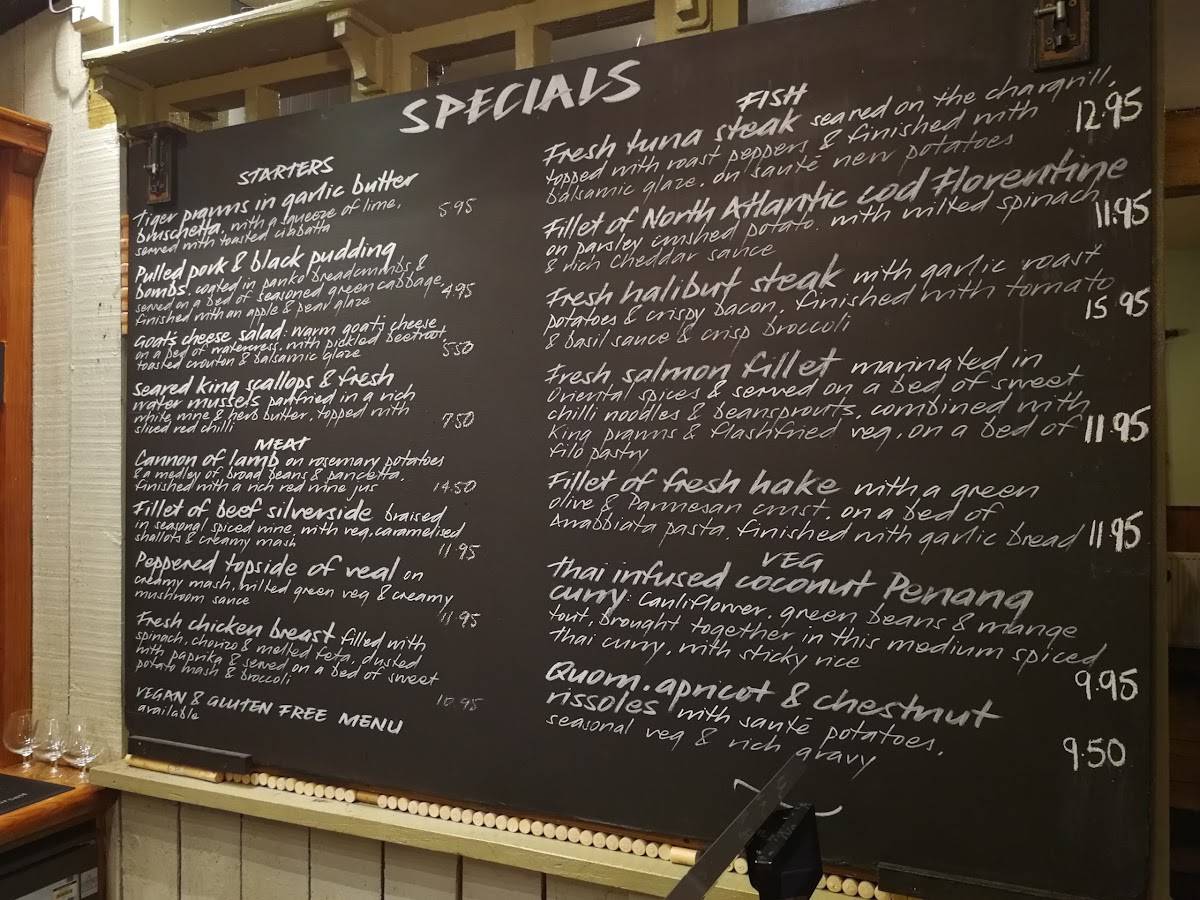 SPECIALS
STARTERS
Tiger prawns in garlic butter
bruschetta, with a squeeze of lime,
served with toasted ciabatta
5.95
Pulled pork & black pudding
bombs, coated in panko breadcrumbs &
served on a bed of seasoned green cabbage,
finished with an apple & pear glaze
4.95
Goat's cheese salad: warm goat's cheese
on a bed of watercress, with pickled beetroot,
toasted crouton & balsamic glaze
5.50
Seared king scallops & fresh
water mussels panfried in a rich
white wine & herb butter, topped with
sliced red chilli
7.50
MEAT
Cannon of lamb on rosemary potatoes
& a medley of broad beans & pancetta,
finished with a rich red wine jus
14.50
Fillet of beef silverside braised
in seasonal spiced wine, with veg, caramelised
shallots & creamy mash
11.95
Peppered topside of veal on
creamy mash, wilted green veg & creamy
mushroom sauce
11.95
Fresh chicken breast filled with
spinach, chorizo & melted feta, dusted
with paprika & served on a bed of sweet
potato mash & broccoli
10.95
VEGAN & GLUTEN FREE MENU
available
FISH
Fresh tuna steak seared on the chargrill,
topped with roast peppers & finished with
balsamic glaze, on sauté new potatoes
12.95
Fillet of North Atlantic cod Florentine
on parsley crushed potato, with wilted spinach
& rich Cheddar sauce
11.95
Fresh halibut steak with garlic roast
potatoes & crispy bacon, finished with tomato
& basil sauce & crisp broccoli
15.95
Fresh salmon fillet marinated in
Oriental spices & served on a bed of sweet
chilli noodles & beansprouts, combined with
king prawns & flashfried veg, on a bed of
filo pastry
11.95
Fillet of fresh hake with a green
olive & Parmesan crust, on a bed of
Arrabbiata pasta, finished with garlic bread
11.95
VEG
Thai infused coconut Penang
curry: Cauliflower, green beans & mange
tout, brought together in this medium spiced
Thai curry, with sticky rice
9.95
Quorn, apricot & chestnut
rissoles with sauté potatoes,
seasonal veg & rich gravy
9.50